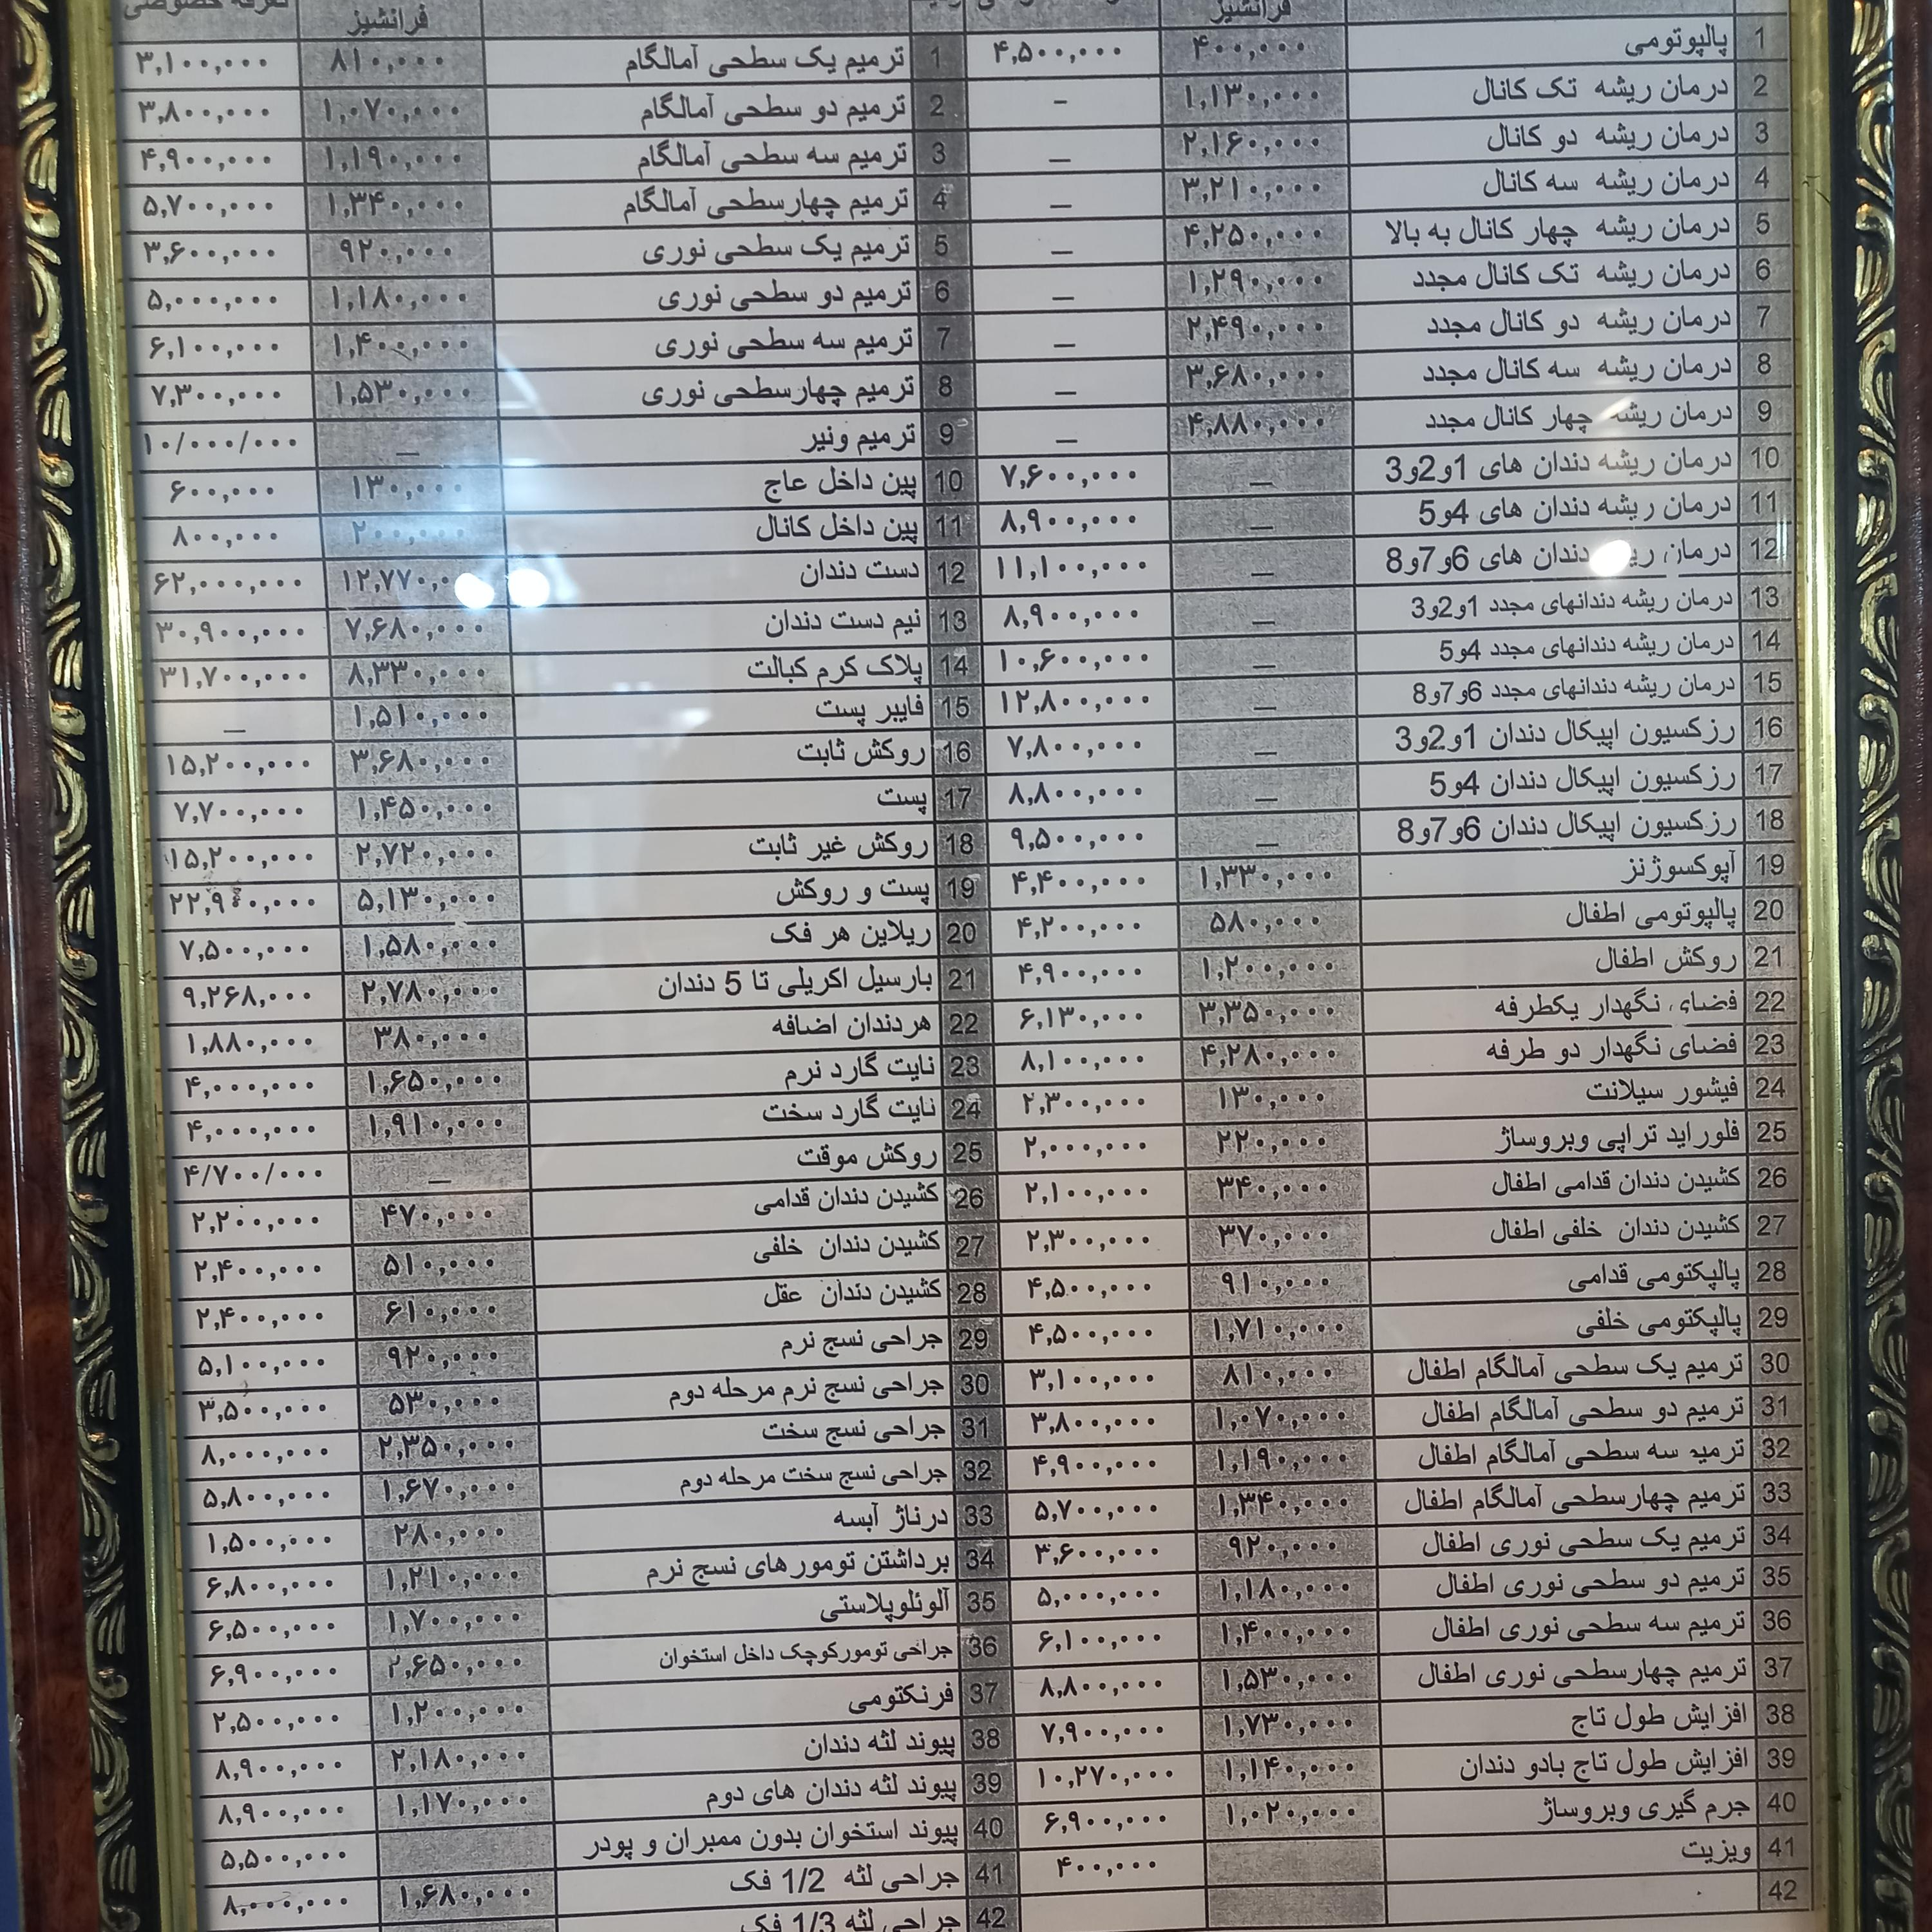 فرانشیز
1 پالپوتومی ۴۰۰,۰۰۰ ۴,۵۰۰,۰۰۰
2 درمان ریشه تک کانال ۱,۱۳۰,۰۰۰ –
3 درمان ریشه دو کانال ۲,۱۶۰,۰۰۰ –
4 درمان ریشه سه کانال ۳,۲۱۰,۰۰۰ –
5 درمان ریشه چهار کانال به بالا ۴,۲۵۰,۰۰۰ –
6 درمان ریشه تک کانال مجدد ۱,۲۹۰,۰۰۰ –
7 درمان ریشه دو کانال مجدد ۲,۴۹۰,۰۰۰ –
8 درمان ریشه سه کانال مجدد ۳,۶۸۰,۰۰۰ –
9 درمان ریشه چهار کانال مجدد ۴,۸۸۰,۰۰۰ –
10 درمان ریشه دندان های 1و2و3 – ۷,۶۰۰,۰۰۰
11 درمان ریشه دندان های 4و5 – ۸,۹۰۰,۰۰۰
12 درمان ریشه دندان های 6و7و8 – ۱۱,۱۰۰,۰۰۰
13 درمان ریشه دندانهای مجدد 1و2و3 – ۸,۹۰۰,۰۰۰
14 درمان ریشه دندانهای مجدد 4و5 – ۱۰,۶۰۰,۰۰۰
15 درمان ریشه دندانهای مجدد 6و7و8 – ۱۲,۸۰۰,۰۰۰
16 رزکسیون اپیکال دندان 1و2و3 – ۷,۸۰۰,۰۰۰
17 رزکسیون اپیکال دندان 4و5 – ۸,۸۰۰,۰۰۰
18 رزکسیون اپیکال دندان 6و7و8 – ۹,۵۰۰,۰۰۰
19 آپوکسوژنز ۱,۳۳۰,۰۰۰ ۴,۴۰۰,۰۰۰
20 پالپوتومی اطفال ۵۸۰,۰۰۰ ۴,۲۰۰,۰۰۰
21 روکش اطفال ۱,۲۰۰,۰۰۰ ۴,۹۰۰,۰۰۰
22 فضای نگهدار یکطرفه ۳,۳۵۰,۰۰۰ ۶,۱۳۰,۰۰۰
23 فضای نگهدار دو طرفه ۴,۲۸۰,۰۰۰ ۸,۱۰۰,۰۰۰
24 فیشور سیلانت ۱۳۰,۰۰۰ ۲,۳۰۰,۰۰۰
25 فلوراید تراپی وبروساژ ۲۲۰,۰۰۰ ۲,۰۰۰,۰۰۰
26 کشیدن دندان قدامی اطفال ۳۴۰,۰۰۰ ۲,۱۰۰,۰۰۰
27 کشیدن دندان خلفی اطفال ۳۷۰,۰۰۰ ۲,۳۰۰,۰۰۰
28 پالپکتومی قدامی ۹۱۰,۰۰۰ ۴,۵۰۰,۰۰۰
29 پالپکتومی خلفی ۱,۷۱۰,۰۰۰ ۴,۵۰۰,۰۰۰
30 ترمیم یک سطحی آمالگام اطفال ۸۱۰,۰۰۰ ۳,۱۰۰,۰۰۰
31 ترمیم دو سطحی آمالگام اطفال ۱,۰۷۰,۰۰۰ ۳,۸۰۰,۰۰۰
32 ترمیم سه سطحی آمالگام اطفال ۱,۱۹۰,۰۰۰ ۴,۹۰۰,۰۰۰
33 ترمیم چهارسطحی آمالگام اطفال ۱,۳۴۰,۰۰۰ ۵,۷۰۰,۰۰۰
34 ترمیم یک سطحی نوری اطفال ۹۲۰,۰۰۰ ۳,۶۰۰,۰۰۰
35 ترمیم دو سطحی نوری اطفال ۱,۱۸۰,۰۰۰ ۵,۰۰۰,۰۰۰
36 ترمیم سه سطحی نوری اطفال ۱,۴۰۰,۰۰۰ ۶,۱۰۰,۰۰۰
37 ترمیم چهارسطحی نوری اطفال ۱,۵۳۰,۰۰۰ ۸,۸۰۰,۰۰۰
38 افزایش طول تاج ۱,۷۳۰,۰۰۰ ۷,۹۰۰,۰۰۰
39 افزایش طول تاج بادو دندان ۱,۱۴۰,۰۰۰ ۱۰,۲۷۰,۰۰۰
40 جرم گیری وبروساژ ۱,۰۲۰,۰۰۰ ۶,۹۰۰,۰۰۰
41 ویزیت ۴۰۰,۰۰۰
42
فرانشیز تعرفه خصوصی
1 ترمیم یک سطحی آمالگام ۸۱۰,۰۰۰ ۳,۱۰۰,۰۰۰
2 ترمیم دو سطحی آمالگام ۱,۰۷۰,۰۰۰ ۳,۸۰۰,۰۰۰
3 ترمیم سه سطحی آمالگام ۱,۱۹۰,۰۰۰ ۴,۹۰۰,۰۰۰
4 ترمیم چهارسطحی آمالگام ۱,۳۴۰,۰۰۰ ۵,۷۰۰,۰۰۰
5 ترمیم یک سطحی نوری ۹۲۰,۰۰۰ ۳,۶۰۰,۰۰۰
6 ترمیم دو سطحی نوری ۱,۱۸۰,۰۰۰ ۵,۰۰۰,۰۰۰
7 ترمیم سه سطحی نوری ۱,۴۰۰,۰۰۰ ۶,۱۰۰,۰۰۰
8 ترمیم چهارسطحی نوری ۱,۵۳۰,۰۰۰ ۷,۳۰۰,۰۰۰
9 ترمیم ونیر – ۱۰/۰۰۰/۰۰۰
10 پین داخل عاج ۱۳۰,۰۰۰ ۶۰۰,۰۰۰
11 پین داخل کانال ۲۰۰,۰۰۰ ۸۰۰,۰۰۰
12 دست دندان ۱۲,۷۷۰,۰۰۰ ۶۲,۰۰۰,۰۰۰
13 نیم دست دندان ۷,۶۸۰,۰۰۰ ۳۰,۹۰۰,۰۰۰
14 پلاک کرم کبالت ۸,۳۳۰,۰۰۰ ۳۱,۷۰۰,۰۰۰
15 فایبر پست ۱,۵۱۰,۰۰۰ –
16 روکش ثابت ۳,۶۸۰,۰۰۰ ۱۵,۲۰۰,۰۰۰
17 پست ۱,۴۵۰,۰۰۰ ۷,۷۰۰,۰۰۰
18 روکش غیر ثابت ۲,۷۲۰,۰۰۰ ۱۵,۲۰۰,۰۰۰
19 پست و روکش ۵,۱۳۰,۰۰۰ ۲۲,۹۰۰,۰۰۰
20 ریلاین هر فک ۱,۵۸۰,۰۰۰ ۷,۵۰۰,۰۰۰
21 بارسیل اکریلی تا 5 دندان ۲,۷۸۰,۰۰۰ ۹,۲۶۸,۰۰۰
22 هردندان اضافه ۳۸۰,۰۰۰ ۱,۸۸۰,۰۰۰
23 نایت گارد نرم ۱,۶۵۰,۰۰۰ ۴,۰۰۰,۰۰۰
24 نایت گارد سخت ۱,۹۱۰,۰۰۰ ۴,۰۰۰,۰۰۰
25 روکش موقت – ۴/۷۰۰/۰۰۰
26 کشیدن دندان قدامی ۴۷۰,۰۰۰ ۲,۲۰۰,۰۰۰
27 کشیدن دندان خلفی ۵۱۰,۰۰۰ ۲,۴۰۰,۰۰۰
28 کشیدن دندان عقل ۶۱۰,۰۰۰ ۲,۴۰۰,۰۰۰
29 جراحی نسج نرم ۹۲۰,۰۰۰ ۵,۱۰۰,۰۰۰
30 جراحی نسج نرم مرحله دوم ۵۳۰,۰۰۰ ۳,۵۰۰,۰۰۰
31 جراحی نسج سخت ۲,۳۵۰,۰۰۰ ۸,۰۰۰,۰۰۰
32 جراحی نسج سخت مرحله دوم ۱,۶۷۰,۰۰۰ ۵,۸۰۰,۰۰۰
33 درناژ آبسه ۲۸۰,۰۰۰ ۱,۵۰۰,۰۰۰
34 برداشتن تومورهای نسج نرم ۱,۲۱۰,۰۰۰ ۶,۸۰۰,۰۰۰
35 آلوئلوپلاستی ۱,۷۰۰,۰۰۰ ۶,۵۰۰,۰۰۰
36 جراحی تومورکوچک داخل استخوان ۲,۶۵۰,۰۰۰ ۶,۹۰۰,۰۰۰
37 فرنکتومی ۱,۲۰۰,۰۰۰ ۲,۵۰۰,۰۰۰
38 پیوند لثه دندان ۲,۱۸۰,۰۰۰ ۸,۹۰۰,۰۰۰
39 پیوند لثه دندان های دوم ۱,۱۷۰,۰۰۰ ۸,۹۰۰,۰۰۰
40 پیوند استخوان بدون ممبران و پودر ۵,۵۰۰,۰۰۰
41 جراحی لثه 1/2 فک ۱,۶۸۰,۰۰۰ ۸,۰۰۰,۰۰۰
42 جراحی لثه 1/3 فک